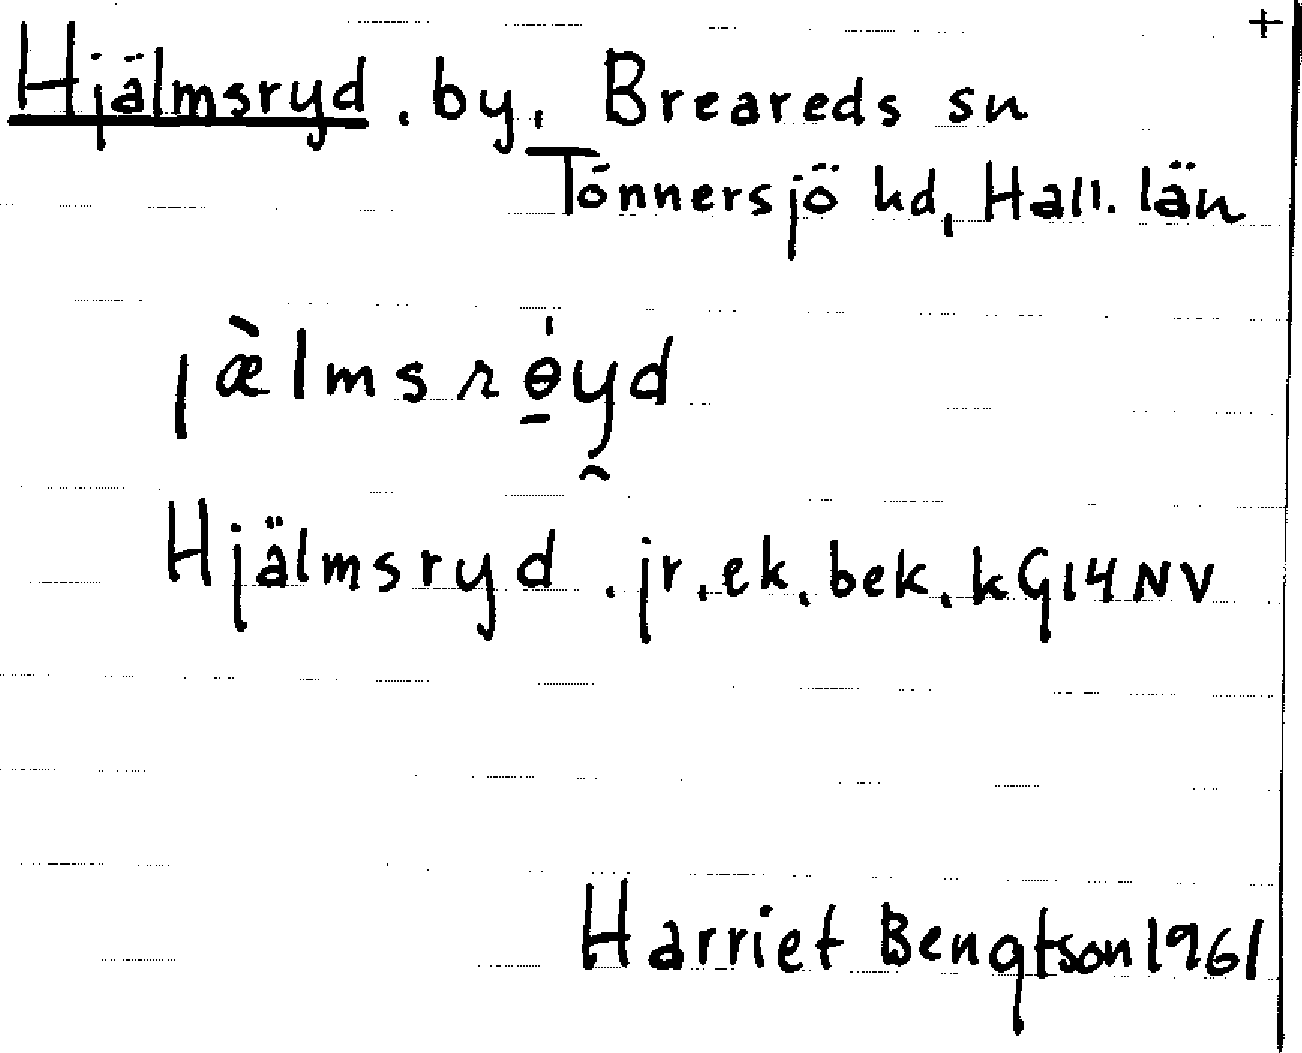 +
Hjälmsryd. by, Breareds sn
Tönnersjö hd, Hall. län
jæ̀lmsrɵ̠́y̯d
Hjälmsryd. jr, ek, bek, kG14NV
Harriet Bengtson 1961